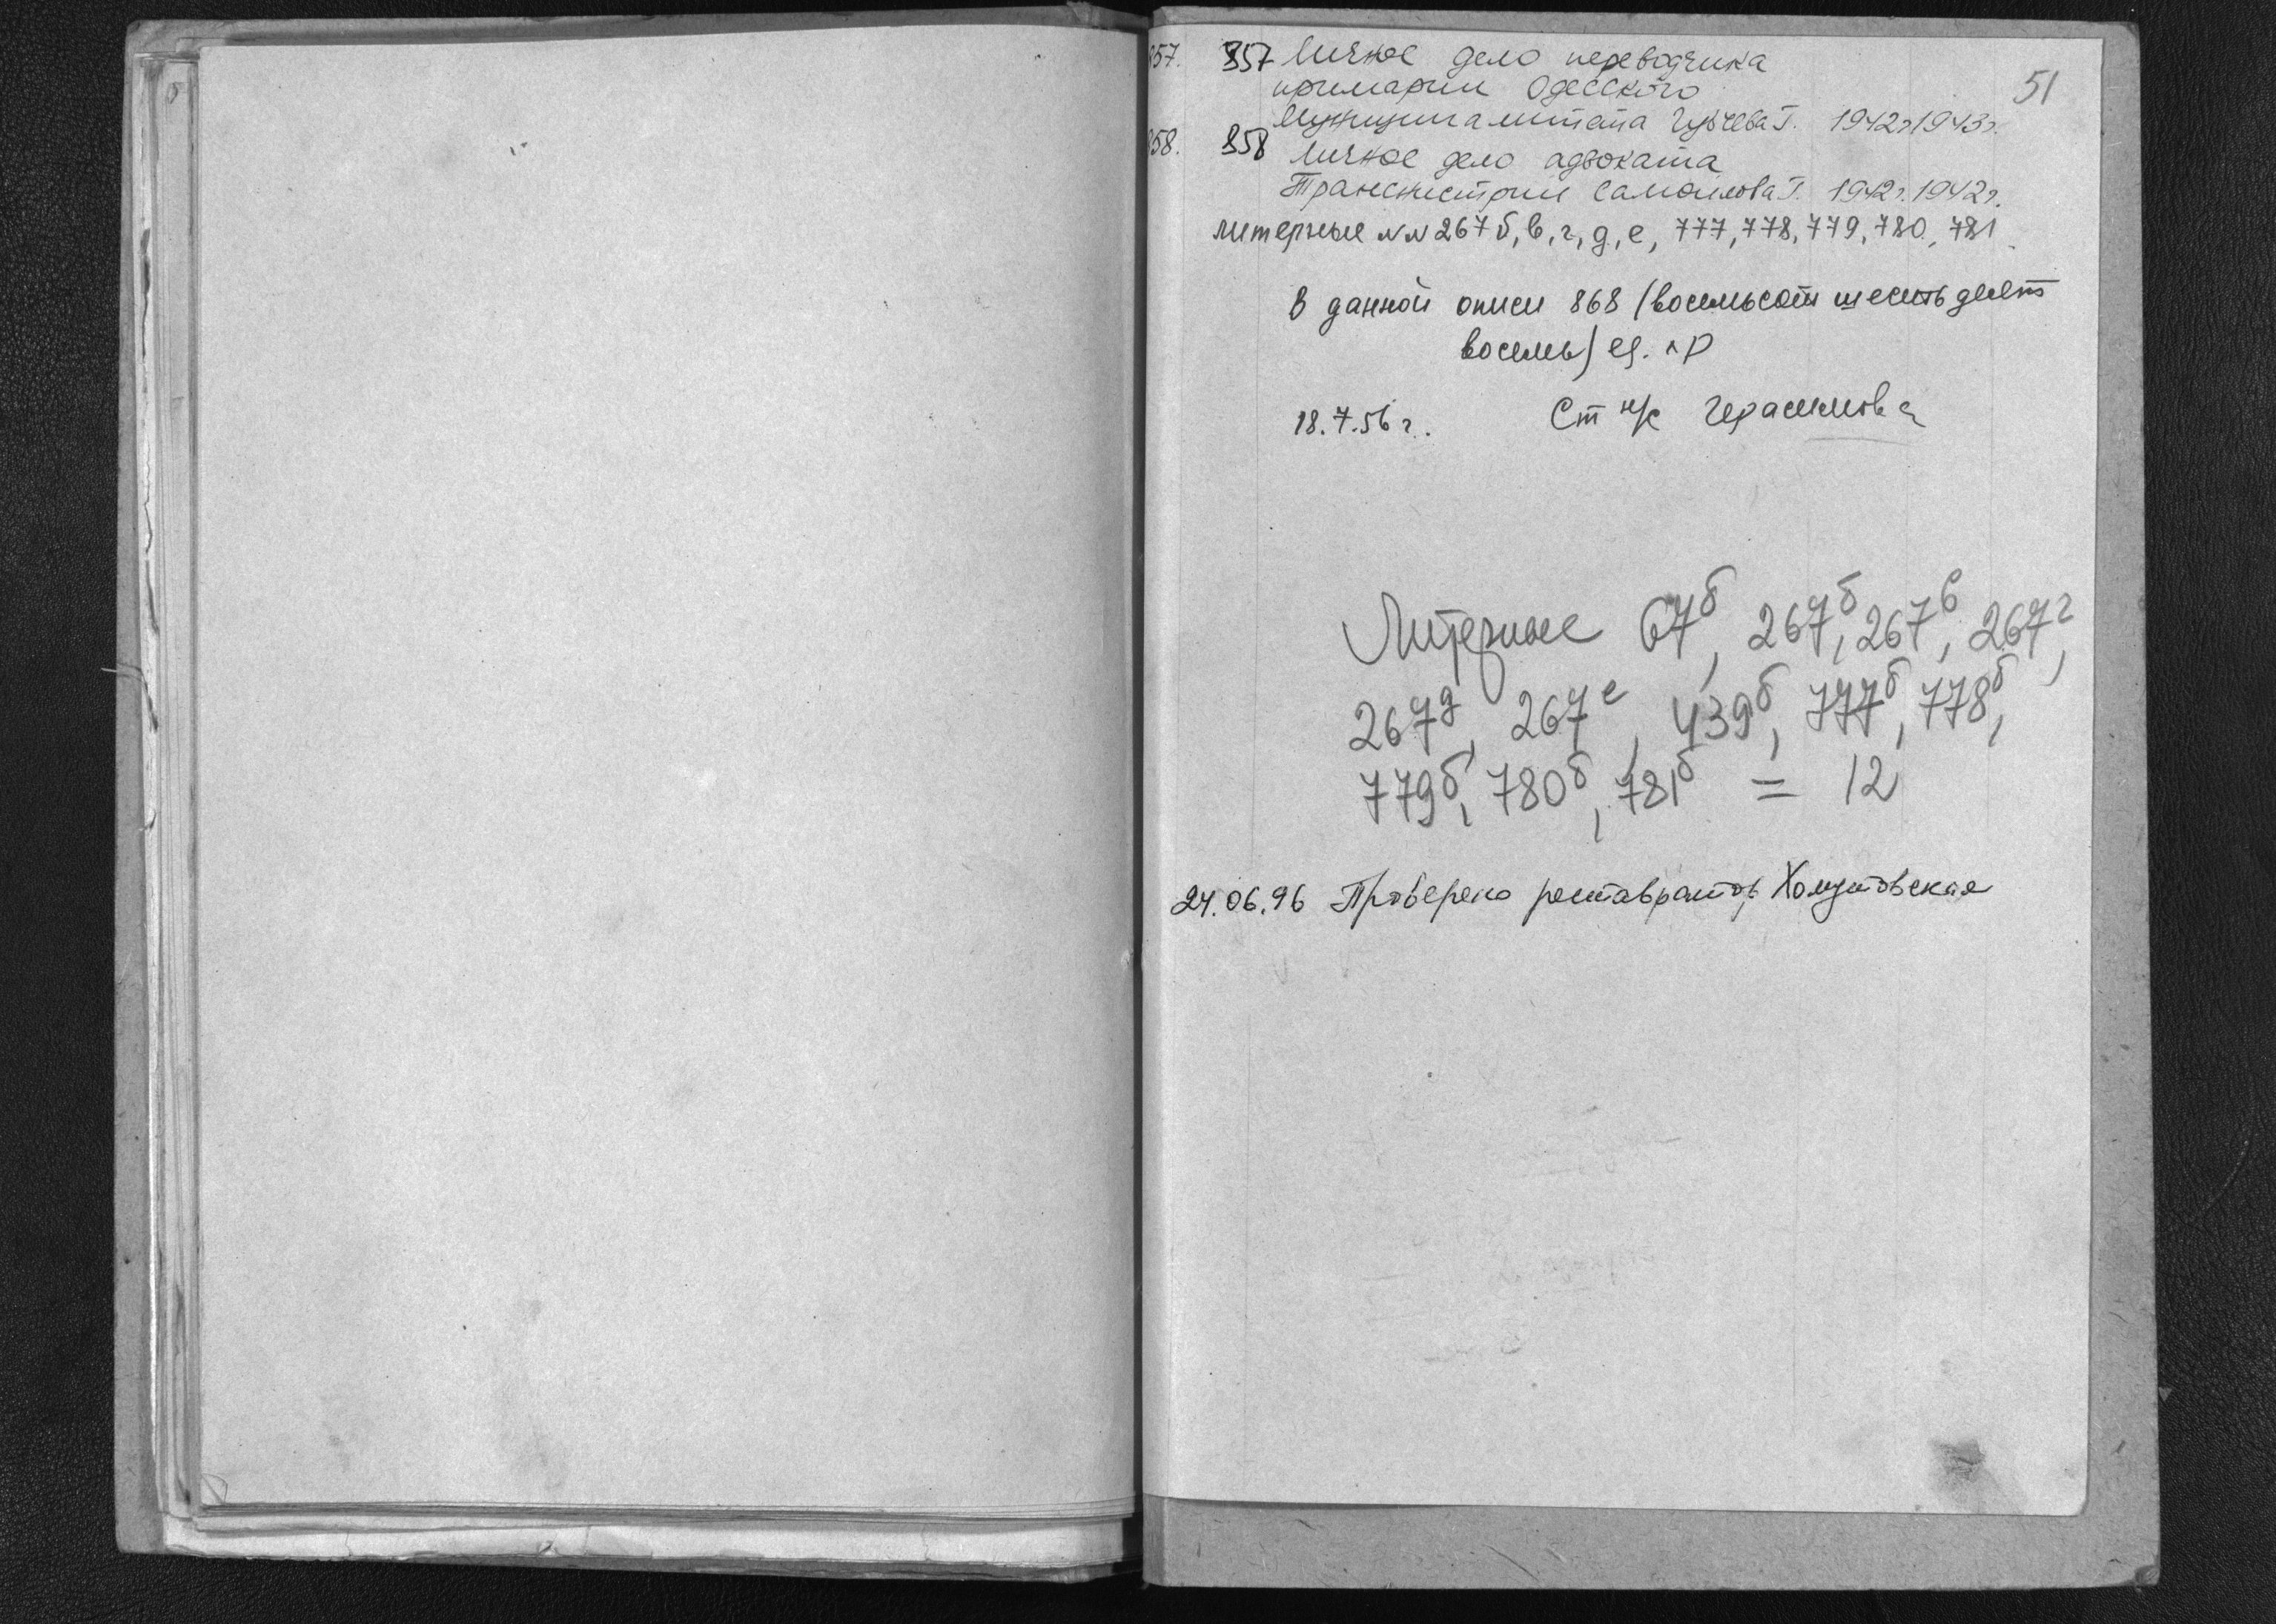 51
857. 857 Личное дело переводчика
примарии Одесского
Муниципалитета Г. 1942г 1943г.
858. 858 Личное дело адвоката
Транснистрии Самойлова Г. 1942г. 1942г.
литерные №№ 267 б, в, г, д, е, 777, 778, 779, 780, 781
В данной описи 868 (восемьсот шестьдесят
восемь) ед. хр
18.7.56 г. Ст н/с Герасимова
Литерные 67б, 267б, 267в, 267г,
267д, 267е, 439б, 777б, 778б,
779б, 780б, 781б = 12
24.06.96 Проверено реставратор Хомутовская